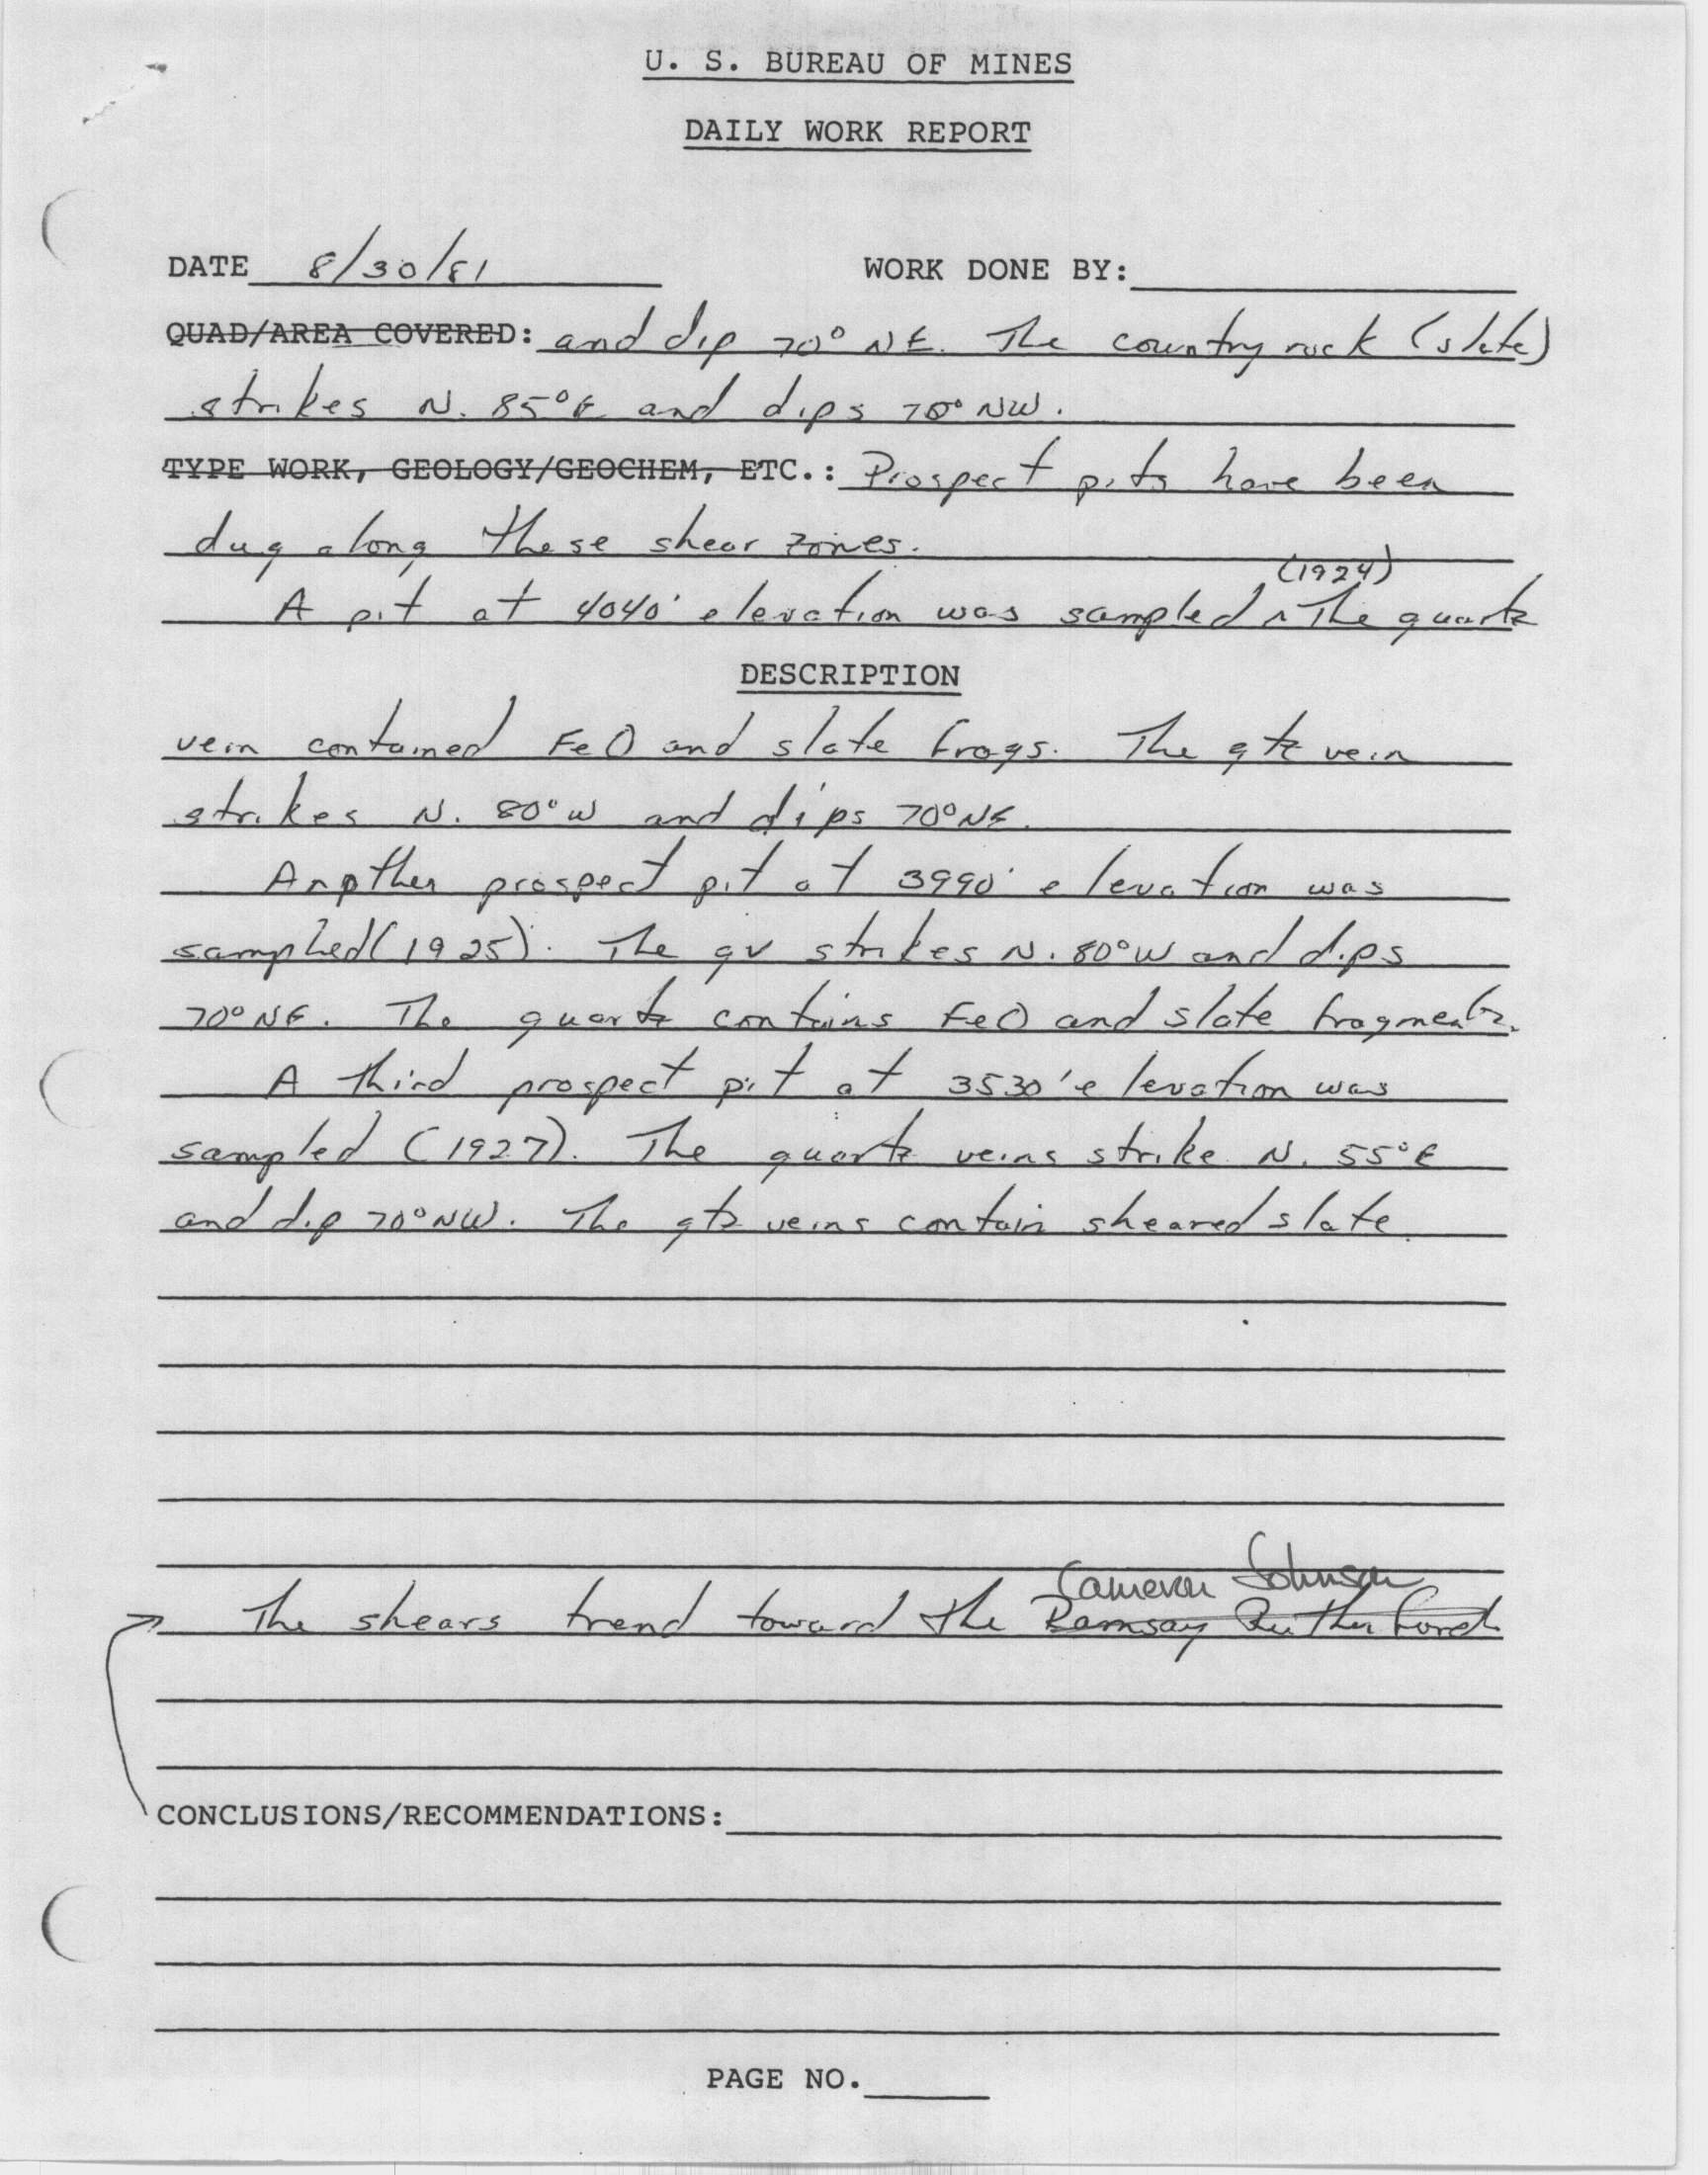 U. S. BUREAU OF MINES
DAILY WORK REPORT
DATE 8/30/81 WORK DONE BY:
QUAD/AREA COVERED: and dip 70° NE. The country rock (slate)
strikes N. 85°E and dips 70° NW.
TYPE WORK, GEOLOGY/GEOCHEM, ETC.: Prospect pits have been
dug along these shear zones.
(1924)
A pit at 4040' elevation was sampled ^ The quartz
DESCRIPTION
vein contained FeO and slate frags. The qtz vein
strikes N. 80°W and dips 70°NE.
Another prospect pit at 3990' elevation was
sampled (1925). The qv strikes N. 80°W and dips
70°NE. The quartz contains FeO and slate fragments.
A third prospect pit at 3530' elevation was
sampled (1927). The quartz veins strike N. 55°E
and dip 70°NW. The qtz veins contain sheared slate.
Cameron Johnson
The shears trend toward the Ramsay Rutherford
CONCLUSIONS/RECOMMENDATIONS:
PAGE NO.